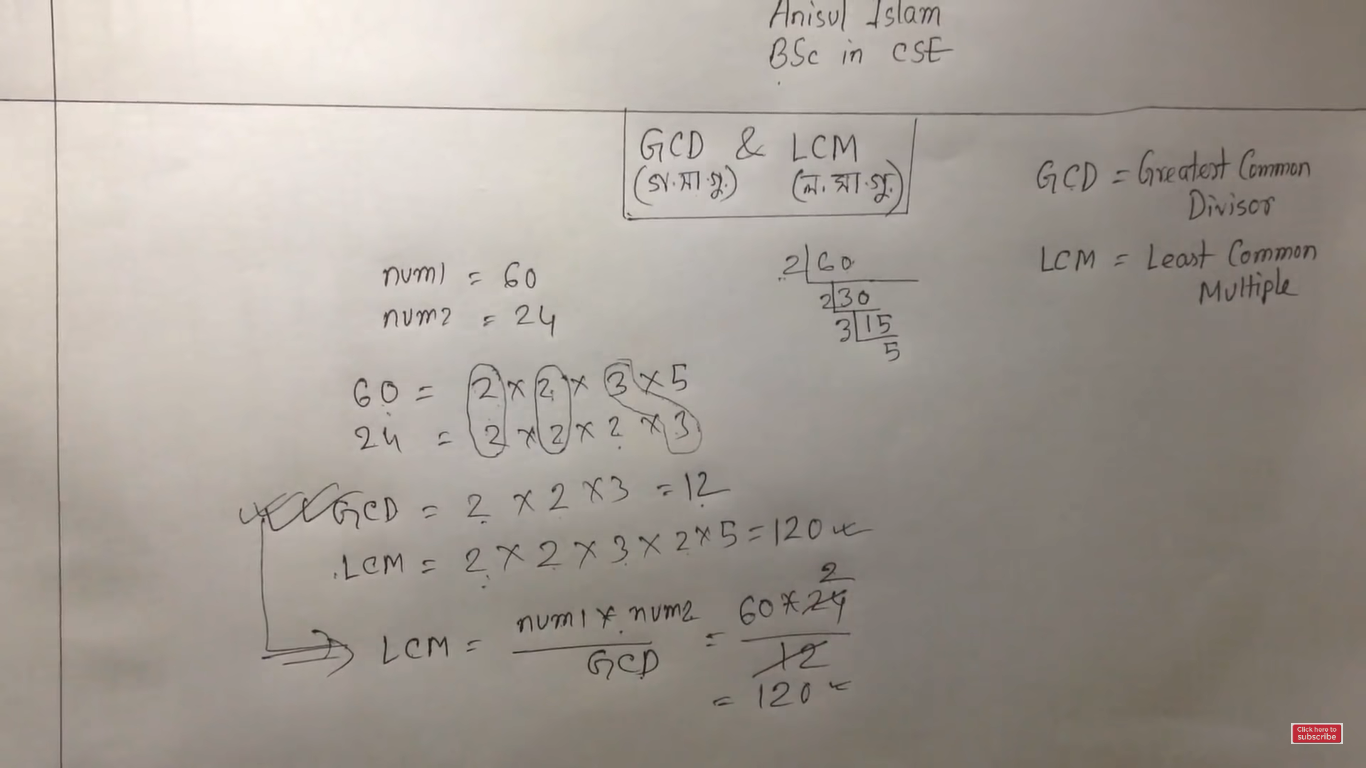 Anisul Islam
BSc in CSE
GCD & LCM
(গ.সা.গু.) (ল.সা.গু.)
GCD = Greatest Common
Divisor
LCM = Least Common
Multiple
num1 = 60
num2 = 24
2 60
2 30
3 15
5
60 = 2 × 2 × 3 × 5
24 = 2 × 2 × 2 × 3
GCD = 2 × 2 × 3 = 12
LCM = 2 × 2 × 3 × 2 × 5 = 120
LCM = num1 * num2 / GCD = 60 * 24 / 12
2
= 120
Click here to
subscribe